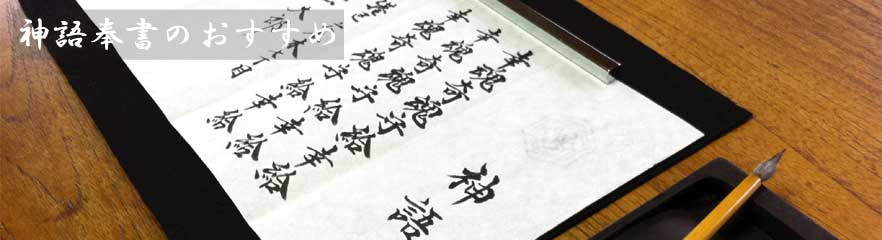 神語奉書のおすすめ
神語
幸魂奇魂守給幸給
幸魂奇魂守給幸給
幸魂奇魂守給幸給